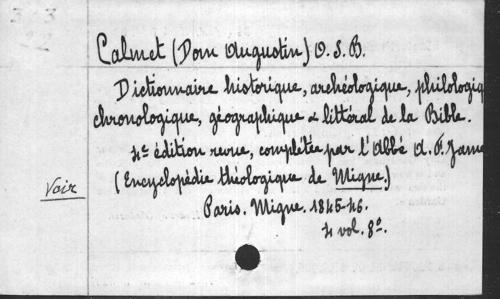 Calmet (Dom Augustin) O. S. B.
Dictionnaire historique, archéologique, philologiq
chronologique, géographique & littéral de la Bible.
4e édition revue, complétée par l'Abbé A. F. Jame
(Encyclopédie théologique de Migne.)
Voir
Paris. Migne. 1845-46.
4 vol. 8o.